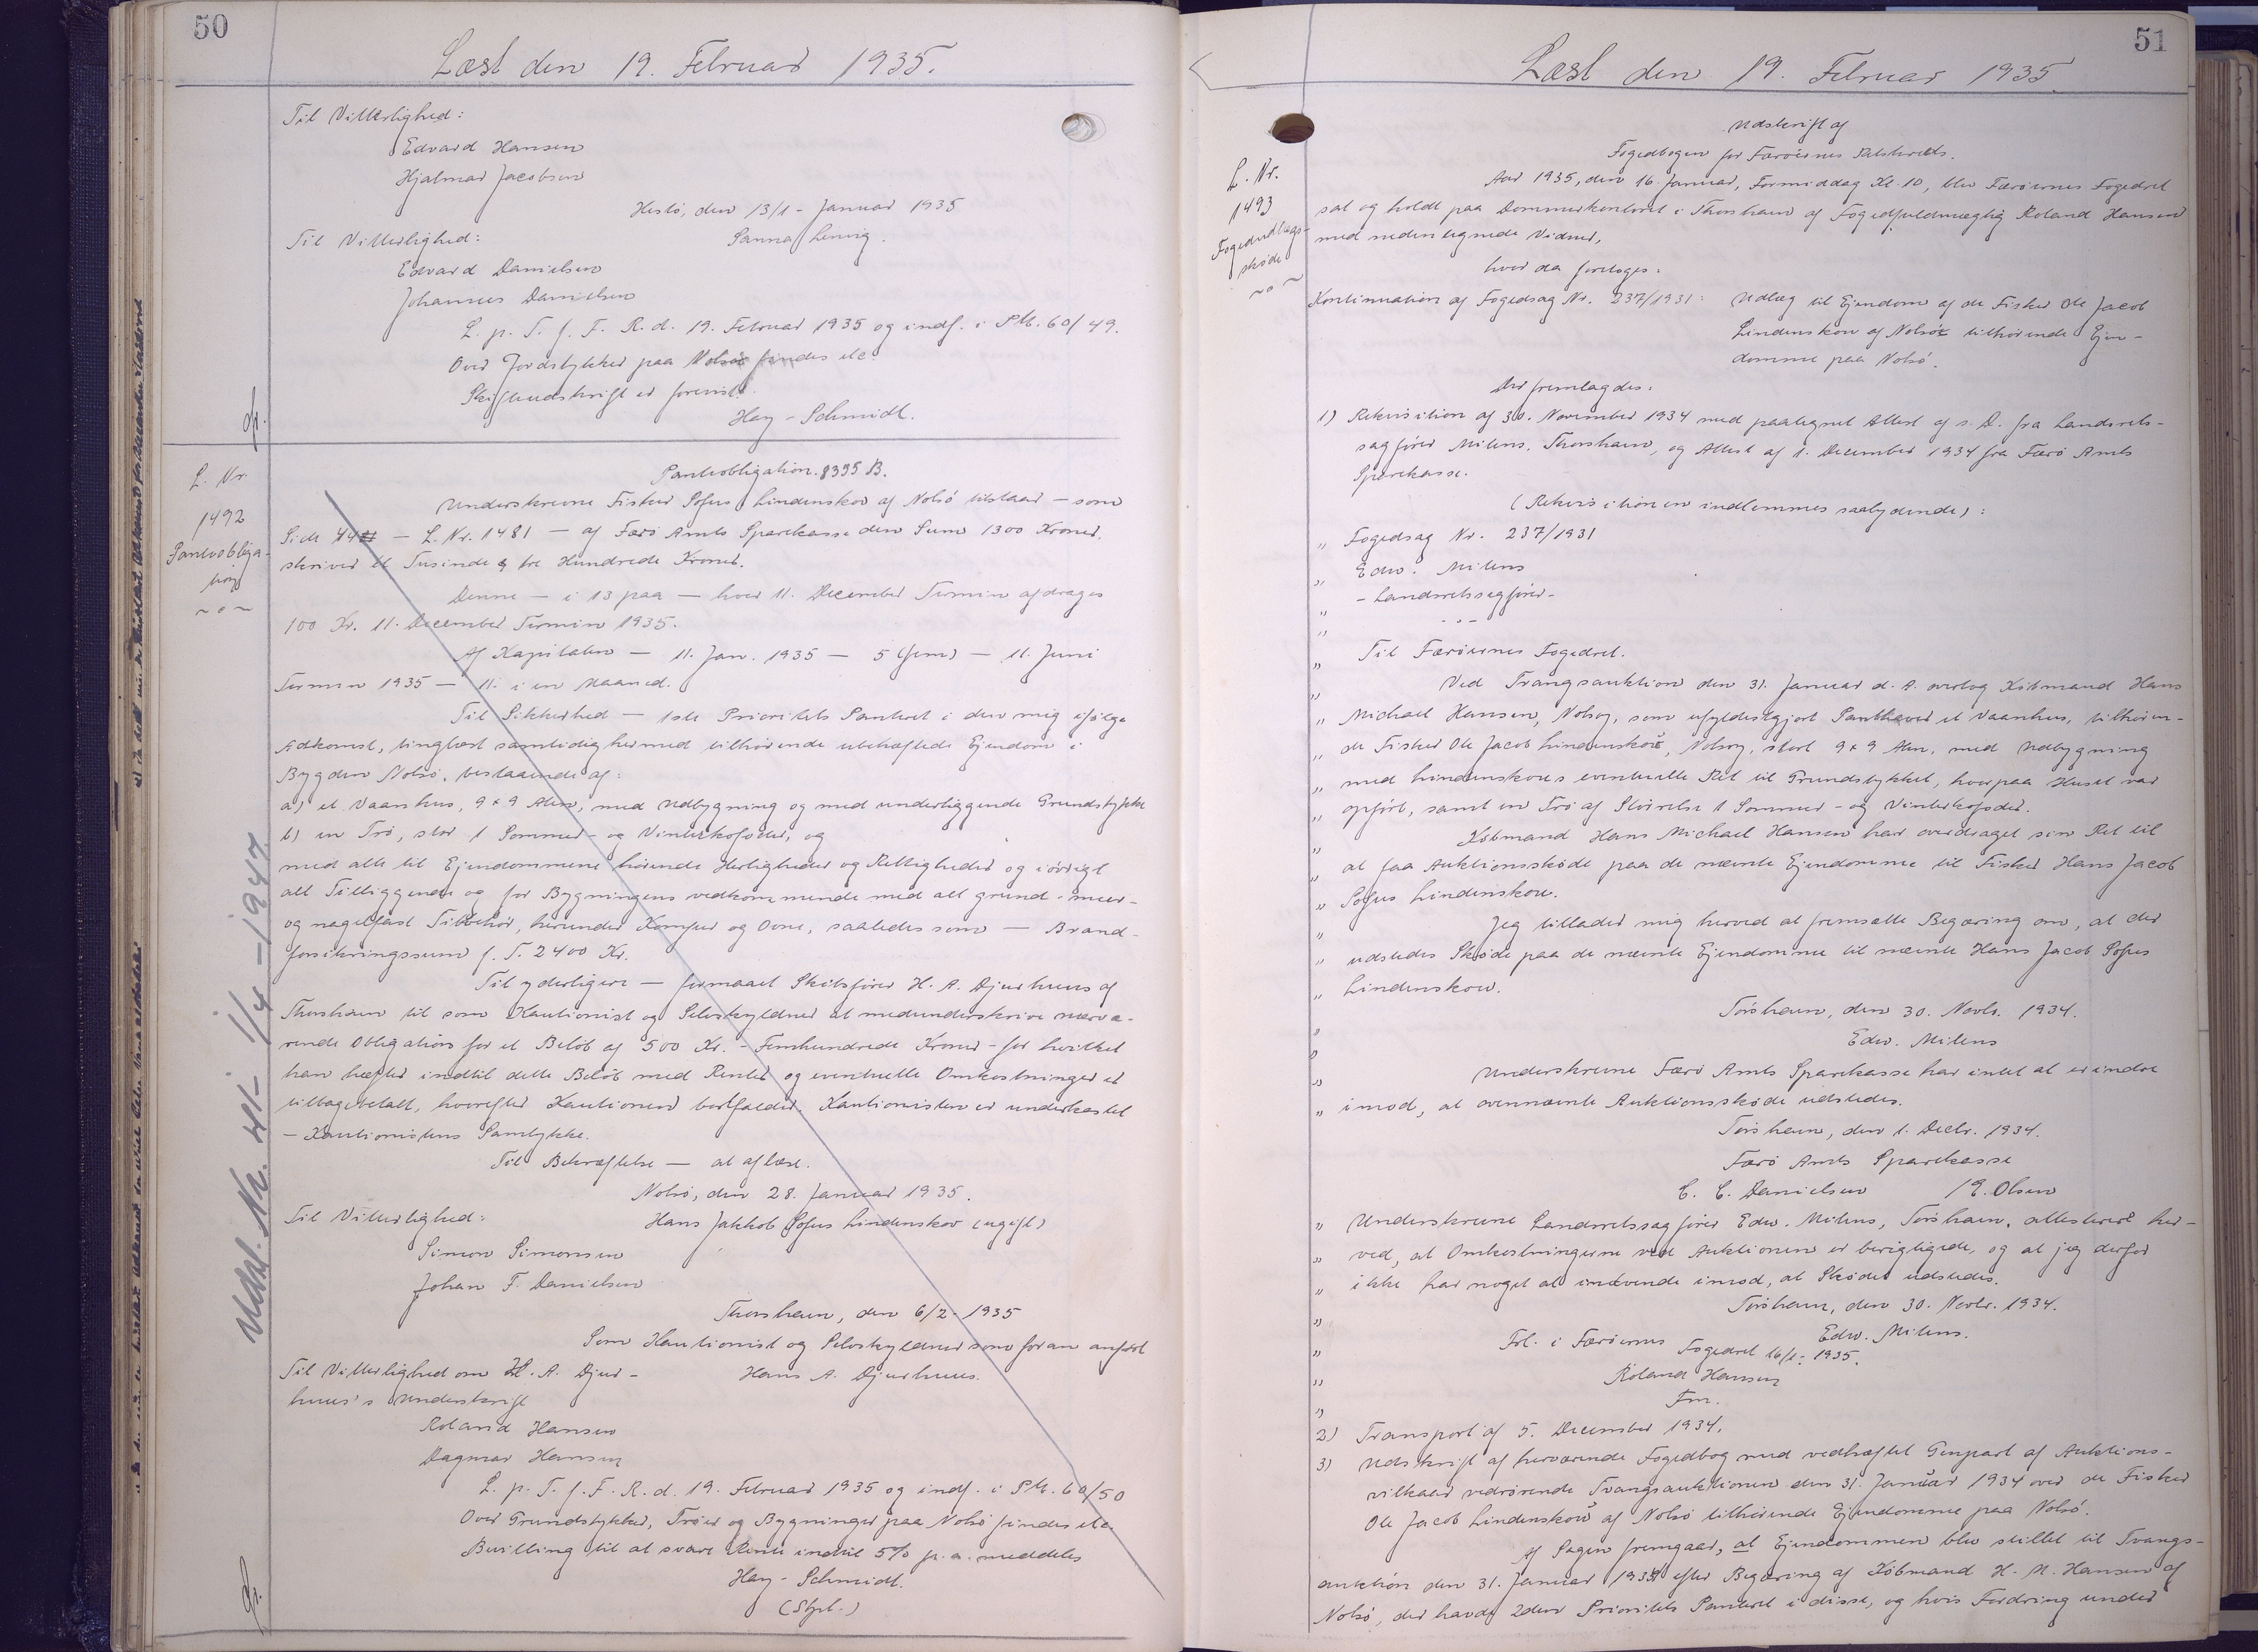 50
Læst den 19. Februar 1935.
Til Vitterlighed:
Edvard Hansen
Hjalmar Jacobsen
Hestö, den 13/1 - Januar 1935
Til Vitterlighed:
Sanna Lervig.
Edvard Danielsen
Johannes Danielsen
L. p. T. f. F. R. d. 19. Februar 1935 og indf. i PM. 60/49.
Over Jordstykker paa Nolsö findes etc.
Skifteudskrift er forevist.
Hey-Schmidt.
L. Nr.
1492
Pantobliga-
tion
~o~
Pantobligation. 8395 B.
Underskrevne Fisker Sofus Lindenskov af Nolsö tilstaar — som
Side 44 — L. Nr. 1481 — af Færö Amts Sparekasse den Sum 1300 Kroner,
skriver et Tusinde & tre Hundrede Kroner.
Denne — i 13 paa — hver 11. December Termin afdrages
100 Kr. 11. December Termin 1935.
Af Kapitalen — 11. Jan. 1935 — 5 (fem) — 11. Juni
Termin 1935 — 11. i en Maaned.
Til Sikkerhed — 1ste Prioritets Panteret i den mig ifölge
Adkomst, tinglæst samtidig hermed tilhörende ubehæftede Ejendom i
Bygden Nolsö, bestaaende af:
a) et Vaanhus, 9 x 9 Alen, med Udbygning og med underliggende Grundstykke
b) en Trö, stor 1 Sommer- og Vinterkofoder, og
med alle til Ejendommene hörende Herligheder og Rettigheder og iövrigt
alt Tilliggende og for Bygningens vedkommende med alt grund- muur-
og nagelfast Tilbehör, herunder Komfur og Ovne, saaledes som — Brand-
forsikringssum f. T. 2400 Kr.
Til yderligere — formaaet Skibsförer H. A. Djurhuus af
Thorshavn til som Kautionist og Selvskyldner at medunderskrive nærvæ-
rende Obligation for et Belöb af 500 Kr. - Femhundrede Kroner - for hvilket
han hæfter indtil dette Belöb med Renter og eventuelle Omkostninger er
tilbagebetalt, hvorefter Kautionen bortfalder. Kautionisten er underkastet
— Kautionistens Samtykke.
Til Bekræftelse — at aflæse.
Nolsö, den 28. Januar 1935.
Til Vitterlighed:
Hans Jakkob Sofus Lindenskov (ugift)
Simon Simonsen
Johan F. Danielsen
Thorshavn, den 6/2 - 1935
Som Kautionist og Selvskyldner som foran anfört
Til Vitterlighed om H. A. Djur-
Hans A. Djurhuus.
huus's Underskrift
Roland Hansen
Dagmar Hansen
L. p. T. f. F. R. d. 19. Februar 1935 og indf. i PM. 60/50
Over Grundstykker, Tröer og Bygninger paa Nolsö findes etc.
Bevilling til at svare Rente indtil 5% p. a. meddeles
Hey-Schmidt.
(Stpl.)
Udsl. Nr. 41 - 1/4 - 1947
51
Læst den 19. Februar 1935.
L. Nr.
1493
Fogedudlægs-
sköde
~o~
Udskrift af
Fogedbogen for Færöernes Retskreds.
Aar 1935, den 16. Januar, Formiddag Kl. 10, blev Færöernes Fogedret
sat og holdt paa Dommerkontoret i Thorshavn af Fogedfuldmægtig Roland Hansen
med nedentegnede Vidner,
hvor da foretoges:
Kontinuation af Fogedsag Nr. 237/1931:
Udlæg til Ejendom af de Fisker Ole Jacob
Lindenskov af Nolsö tilhörende Ejen-
domme paa Nolsö.
Der fremlagdes:
1) Rekvisition af 30. November 1934 med paategnet Attest af s. D. fra Landsrets-
sagförer Mitens, Thorshavn, og Attest af 1. December 1934 fra Færö Amts
Sparekasse.
(Rekvisitionen indlemmes saalydende):
" Fogedsag Nr. 237/1931
" Edw. Mitens
" - Landsretssagförer -
" - . -
" Til Færöernes Fogedret.
" Ved Tvangsauktion den 31. Januar d. A. overtog Köbmand Hans
" Michael Hansen, Nolsoy, som ufyldestgjort Panthaver et Vaanhus, tilhören-
" de Fisker Ole Jacob Lindenskov, Nolsoy, stort 9 x 9 Alen, med Udbygning
" med Lindenskovs eventuelle Ret til Grundstykket, hvorpaa Huset var
" opfört, samt en Trö af Störrelse 1 Sommer- og Vinterkofoder.
" Köbmand Hans Michael Hansen har overdraget sin Ret til
" at faa Auktionssköde paa de nævnte Ejendomme til Fisker Hans Jacob
" Sofus Lindenskov.
" Jeg tillader mig herved at fremsætte Begæring om, at der
" udstedes Sköde paa de nævnte Ejendomme til nævnte Hans Jacob Sofus
" Lindenskov.
Tórshavn, den 30. Novbr. 1934.
" Edw. Mitens
" Underskrevne Færö Amts Sparekasse har intet at erindre
" imod, at ovennævnte Auktionssköde udstedes.
Tórshavn, den 1. Decbr. 1934.
Færö Amts Sparekasse
C. C. Danielsen / E. Olsen
" Underskrevne Landsretssagförer Edw. Mitens, Tórshavn, attesterer her-
" ved, at Omkostningerne ved Auktionen er berigtigede, og at jeg derfor
" ikke har noget at indvende imod, at Sködet udstedes.
" Tórshavn, den 30. Novbr. 1934.
Edw. Mitens.
" Frl. i Færöernes Fogedret 16/1 - 1935.
" Roland Hansen
" Fm.
2) Transport af 5. December 1934.
3) Udskrift af herværende Fogedbog med vedhæftet Genpart af Auktions-
vilkaar vedrörende Tvangsauktionen den 31. Januar 1934 over de Fisker
Ole Jacob Lindenskov af Nolsö tilhörende Ejendomme paa Nolsö.
Af Sagen fremgaar, at Ejendommen blev stillet til Tvangs-
auktion den 31. Januar 1934 efter Begæring af Köbmand H. M. Hansen af
Nolsö, der havde 2den Prioritets Panteret i disse, og hvis Fordring under